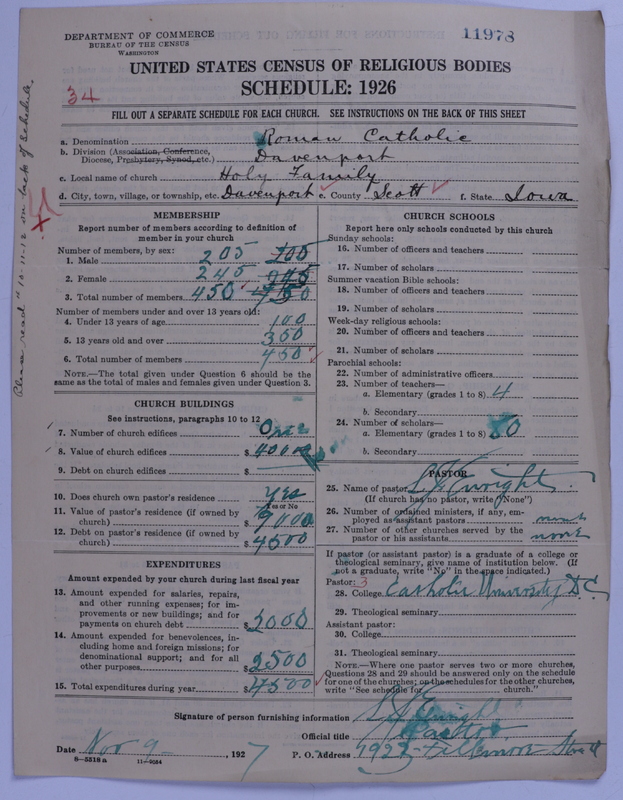 DEPARTMENT OF COMMERCE
BUREAU OF THE CENSUS
WASHINGTON
11978
UNITED STATES CENSUS OF RELIGIOUS BODIES
SCHEDULE: 1926
34
FILL OUT A SEPARATE SCHEDULE FOR EACH CHURCH. SEE INSTRUCTIONS ON THE BACK OF THIS SHEET
a. Denomination Roman Catholic
b. Division (Association, Conference, Diocese, Presbytery, Synod, etc.) Davenport
c. Local name of church Holy Family
d. City, town, village, or township, etc. Davenport e. County Scott f. State Iowa
Please read "10-11-12 on back of Schedule.
MEMBERSHIP
Report number of members according to definition of
member in your church
Number of members, by sex:
1. Male 205
2. Female 245
3. Total number of members 450
Number of members under and over 13 years old:
4. Under 13 years of age 100
5. 13 years old and over 350
6. Total number of members 450
NOTE.—The total given under Question 6 should be the
same as the total of males and females given under Question 3.
CHURCH BUILDINGS
See instructions, paragraphs 10 to 12
7. Number of church edifices One
8. Value of church edifices $ 40000
9. Debt on church edifices $
10. Does church own pastor's residence Yes
Yes or No
11. Value of pastor's residence (if owned by
church) $ 9000
12. Debt on pastor's residence (if owned by
church) $ 4500
EXPENDITURES
Amount expended by your church during last fiscal year
13. Amount expended for salaries, repairs,
and other running expenses; for im-
provements or new buildings; and for
payments on church debt $ 2000
14. Amount expended for benevolences, in-
cluding home and foreign missions; for
denominational support; and for all
other purposes $ 2500
15. Total expenditures during year $ 4500
CHURCH SCHOOLS
Report here only schools conducted by this church
Sunday schools:
16. Number of officers and teachers
17. Number of scholars
Summer vacation Bible schools:
18. Number of officers and teachers
19. Number of scholars
Week-day religious schools:
20. Number of officers and teachers
21. Number of scholars
Parochial schools:
22. Number of administrative officers
23. Number of teachers—
a. Elementary (grades 1 to 8) 4
b. Secondary
24. Number of scholars—
a. Elementary (grades 1 to 8) 80
b. Secondary
PASTOR
25. Name of pastor
(If church has no pastor, write "None")
26. Number of ordained ministers, if any, em-
ployed as assistant pastors none
27. Number of other churches served by the
pastor or his assistants none
If pastor (or assistant pastor) is a graduate of a college or
theological seminary, give name of institution below. (If
not a graduate, write "No" in the place indicated.)
Pastor: 3
28. College Catholic University D.C.
29. Theological seminary
Assistant pastor:
30. College
31. Theological seminary
NOTE.—Where one pastor serves two or more churches,
Questions 28 and 29 should be answered only on the schedule
for one of the churches; on the schedules for the other churches,
write "See schedule for church."
Signature of person furnishing information
Official title Pastor
Date Nov 9, 1927 P. O. Address 1923 Fillmore Street
8-5518 a 11-9054